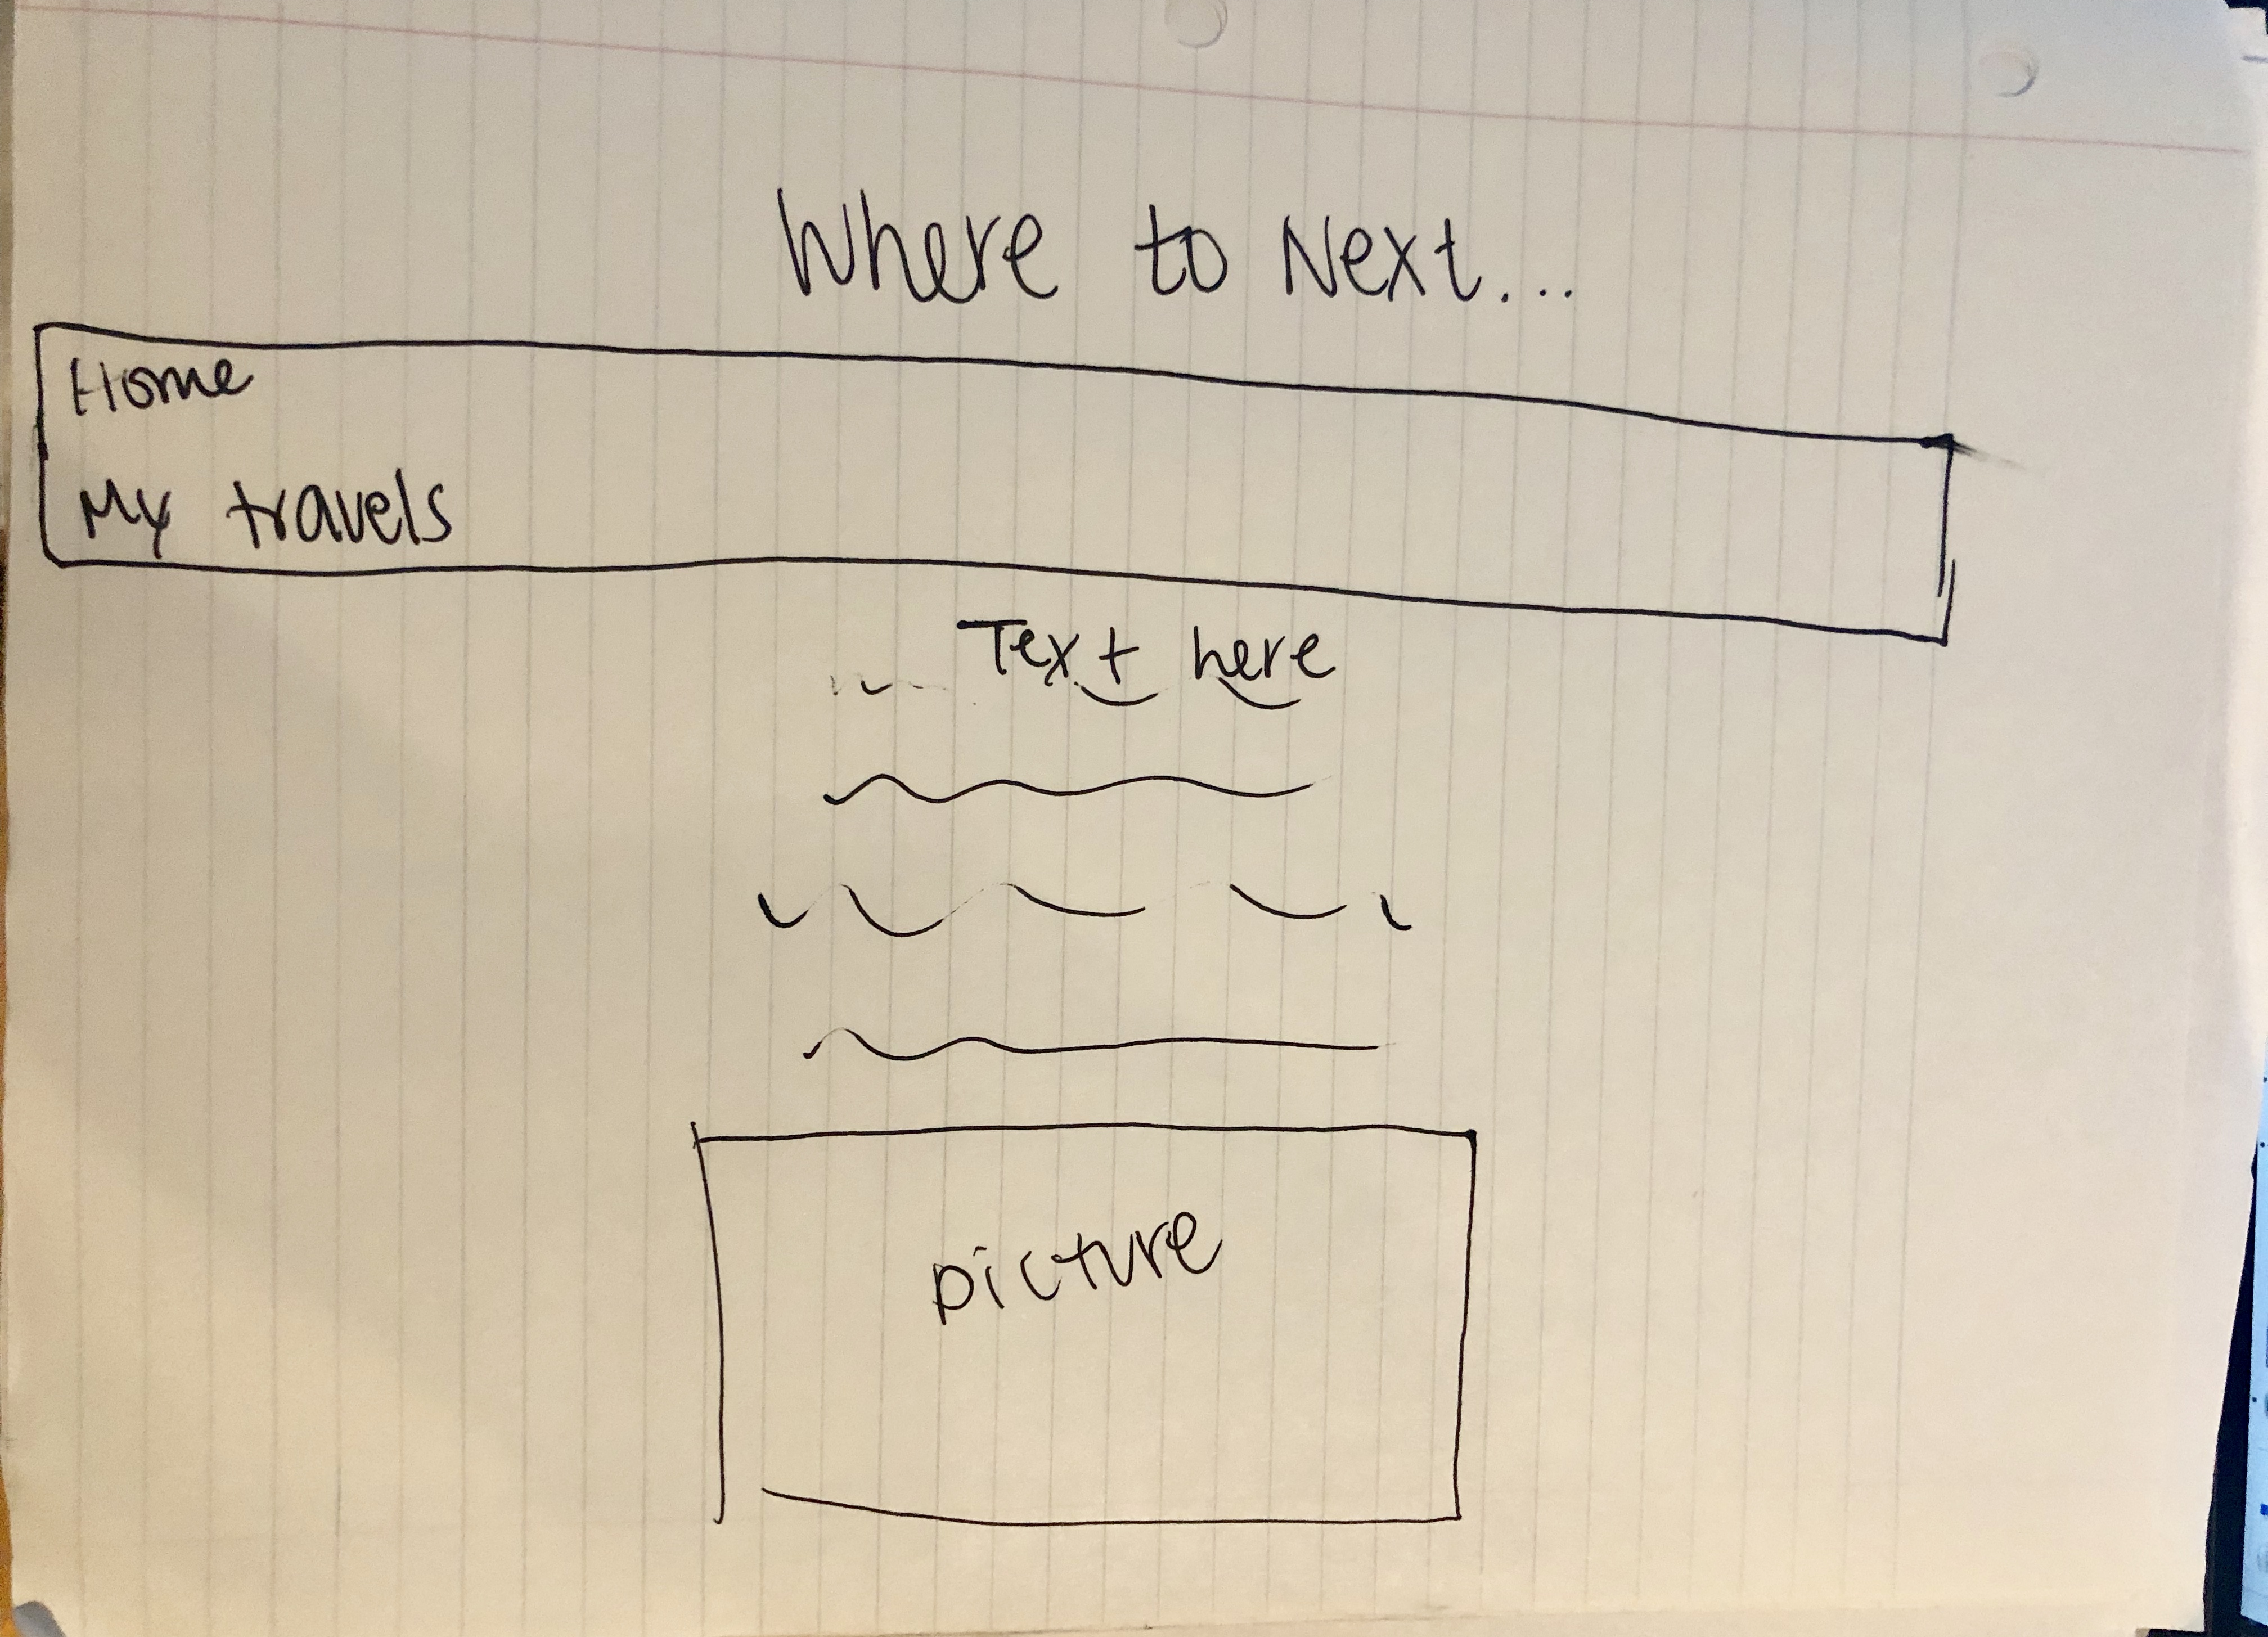 Where to Next...
Home
My travels
Text here
picture